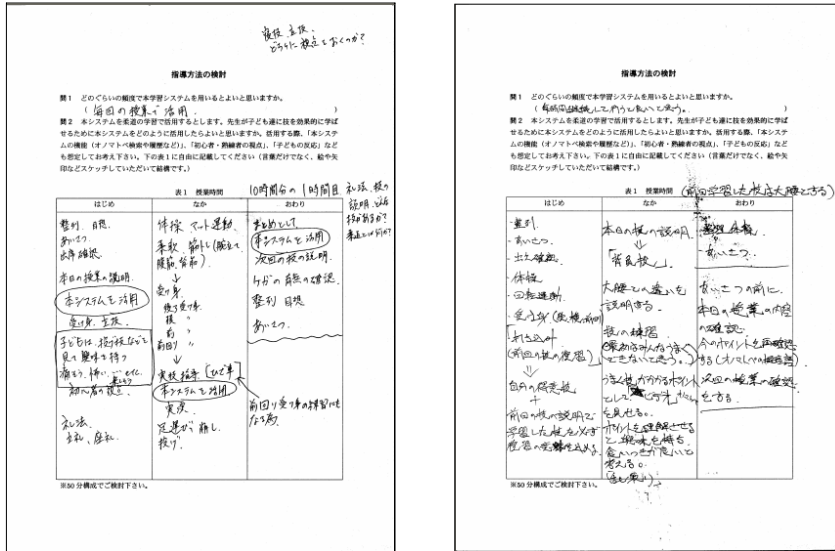 寝技、立技、
どちらに視点をおくのか?
指導方法の検討
問1 どのぐらいの頻度で本学習システムを用いるとよいと思いますか。
( 毎回の授業で活用。 )
問2 本システムを柔道の学習で活用するとします。先生が子ども達に技を効果的に学ば
せるために本システムをどのように活用したらよいと思いますか。活用する際、「本システ
ムの機能(オノマトペ検索や履歴など)」、「初心者・熟練者の視点」、「子どもの反応」など
も想定してお考え下さい。下の表1に自由に記載してください(言葉だけでなく、絵や矢
印などスケッチしていただいて結構です。)
表1 授業時間
10時間分の1時間目
礼法、技の
説明
はじめ
なか
おわり
整列、目想、
あいさつ
出席確認、
本日の授業の説明、
本システムを活用
受け身、立技、
子どもは、投げ技などを
見て興味を持つ
礼法、
立礼、座礼、
体操、マット運動、
柔軟、筋トレ(腕立て
腹筋、背筋)
↓
受け身
後ろ受け身
横 〃
前 〃
前回り 〃
↓
実技指導
本システムを活用
実演、
足運び、崩し、
投げ、
まとめとして
本システムを活用
次回の技の説明、
ケガの有無の確認、
整列 目想
あいさつ、
前回り受け身の練習にも
なる為
※50分構成でご検討下さい。
指導方法の検討
問1 どのぐらいの頻度で本学習システムを用いるとよいと思いますか。
問2 本システムを柔道の学習で活用するとします。先生が子ども達に技を効果的に学ば
せるために本システムをどのように活用したらよいと思いますか。活用する際、「本システ
ムの機能(オノマトペ検索や履歴など)」、「初心者・熟練者の視点」、「子どもの反応」など
も想定してお考え下さい。下の表1に自由に記載してください(言葉だけでなく、絵や矢
印などスケッチしていただいて結構です。)
表1 授業時間
(前回学習した技は大腰とする)
はじめ
なか
おわり
・整列
・あいさつ
・出欠確認
・体操
・回転運動
・打ち込み
(前回の技の復習)
↓
自分の得意技
+
前回の技の説明で
学習した技を必ず
本日の技の説明
⇓
「背負投」
大腰との違いを
説明する。
技の練習
(最初はみんなうまく
できないと思う。)
うまく技がかかるポイント
として
を見せる。
ポイントを理解させる
と興味を持ち、
食いつきが良いと
考える。
・あいさつ
あいさつの前に、
本日の授業の内容
の確認
今のポイントを再確認
する
次回の授業の確認
をする。
※50分構成でご検討下さい。